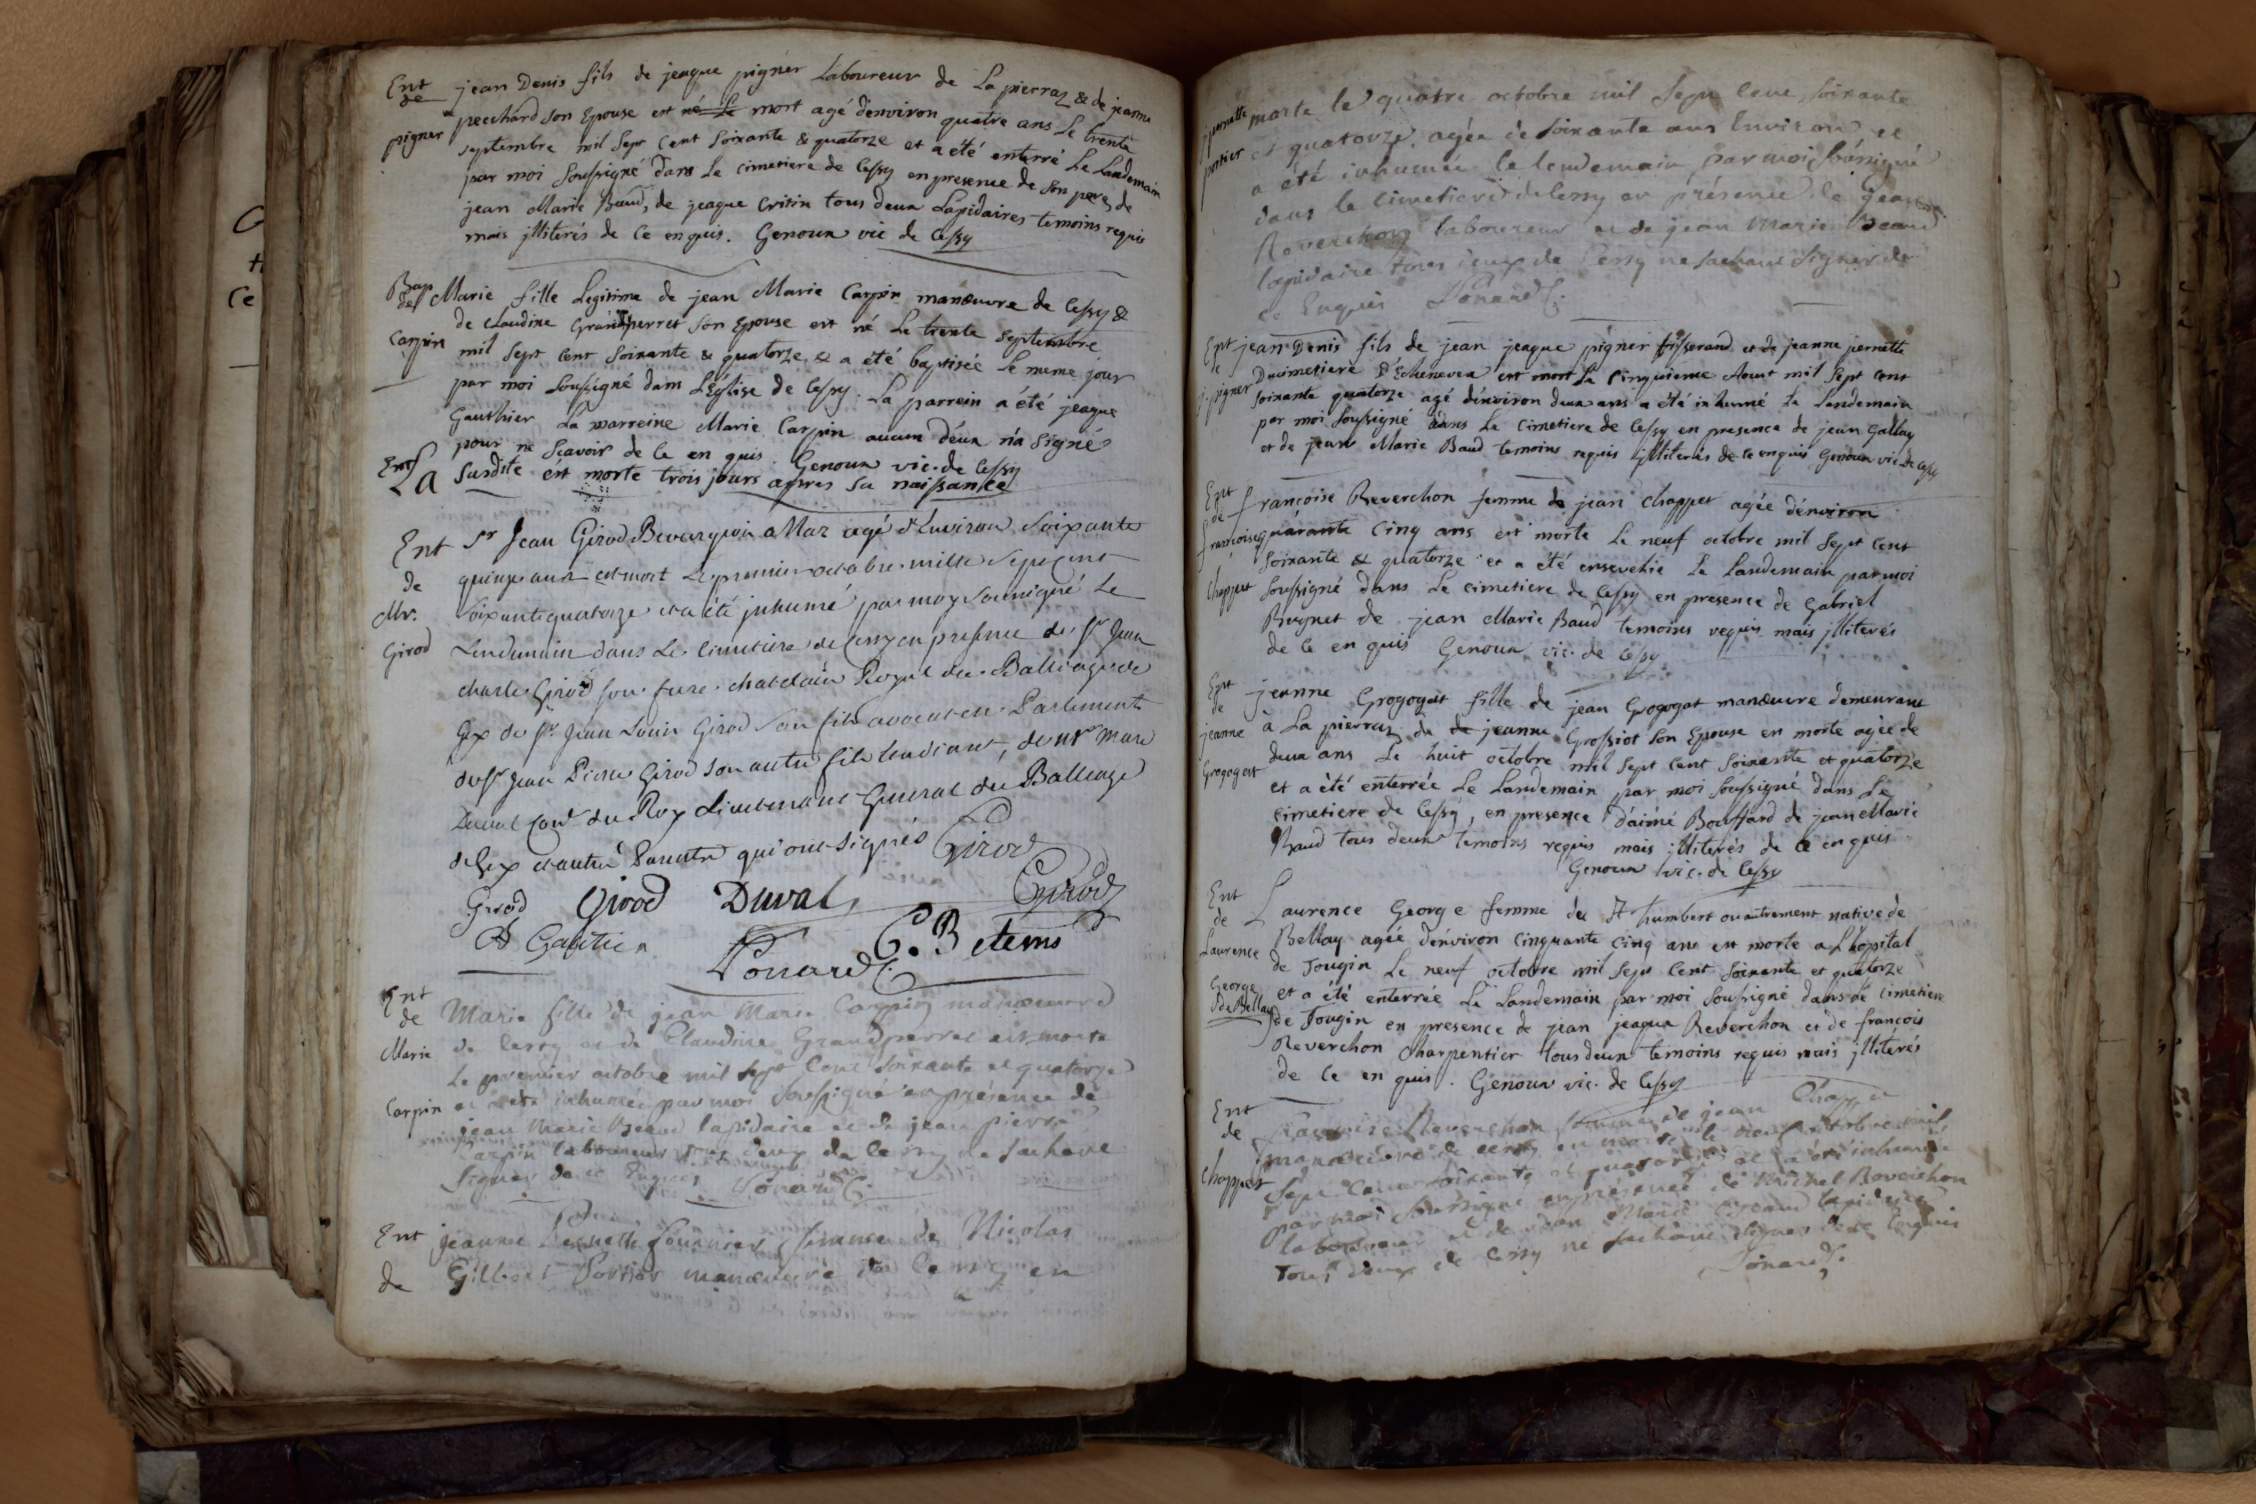 Ent
de
pigner
jean Denis fils de jeaque pigner Laboureur de La pierraz & de jeanne
pecchard son Epouse est né Le mort agé d'environ quatre ans Le trente
septembre mil sept cent soixante & quatorze et a été enterré Le Landemain
par moi soussigné dans Le cimetiere de Cessy en presence de son pere, de
jean Marie Baud, de jeaque critin tous deux Lapidaires temoins requis
mais jlliterés de ce enquis. Genoux vic de Cessy
Bap
de
Carpin
Marie fille Legitime de jean Marie Carpin manœuvre de Cessy &
de Claudine Grandperret son Epouse est né Le trente septembre
mil sept cent soixante & quatorze & a été baptisée Le meme jour
par moi soussigné dans L'Eglise de Cessy. La parrein a été jeaque
Gauthier La marreine Marie Carpin aucun d'eux n'a signé
pour ne sçavoir de ce en quis. Genoux vic. de Cessy
Ent
La susdite est morte trois jours apres sa naissance
Ent
de
Mr.
Girod
Sr Jean Girod Bourgeois a Mar agé d'Environ Soixante
quinze ans est mort Le premier octobre mille Sept cent
Soixante quatorze et a été jnhumé par moy soussigné Le
Lendemain dans Le Cimetiere de Cessy en presence de Sr Jean
charle Girod son frere chatelain Royal du Balliage de
Gex de Sr Jean Louis Girod son fils avocat en Parlement
du Sr Jean Pierre Girod son autre fils Etudiant, de Mr Marc
Duval Con. du Roy Lieutenant General du Balliage
de Gex et autre Parents qui ont signés Girod
Girod Girod Duval Girod
Gautier C. Betems
Ponard C.
Ent
de
Marie
Carpin
Marie fille de jean Marie Carpin manœuvre
de Cessy et de Claudine Grandperret est morte
le premier octobre mil sept Cent soixante et quatorze
et a été inhumée par moi soussigné en présence de
jean Marie Beaud lapidaire et de jean pierre
Carpin laboureur tous deux de Cessy ne sachant
signer de ce Enquis Ponard C.
Ent
de
jeanne Pernette fournier femme de Nicolas
Gilbert Portier manœuvre de Cessy en
pernette
portier
morte le quatre octobre mil Sept Cent soixante
et quatorze, agée de soixante ans Environ et
a été inhumée le lendemain par moi soussigné
dans le cimetiere de Cessy en présence de jean
Reverchon laboureur et de jean Marie Beaud
lapidaire tous deux de Cessy ne sachant signer de
ce Enquis Ponard C.
Ent
de
pigner
jean Denis fils de jean jeaque pigner tisserand et de jeanne pernette
Ducimetiere d'Echenevex est mort Le cinquieme Aout mil sept cent
soixante quatorze agé d'environ deux ans a été inhumé Le Landemain
par moi soussigné dans Le Cimetiere de Cessy en presence de jean Gallay
et de jean Marie Baud temoins requis jlliterés de ce enquis Genoux vic. de Cessy
Ent
de
françoise
Chappet
françoise Reverchon femme de jean chappet agée d'environ
quarante cinq ans est morte Le neuf octobre mil sept cent
soixante & quatorze et a été ensevelie Le Landemain par moi
soussigné dans Le cimetiere de Cessy en presence de Gabriel
Buynet de jean Marie Baud temoins requis mais jlliterés
de ce en quis Genoux vic. de Cessy
Ent
de
jeanne
Grogogat
jeanne Grogogat fille de jean Grogogat manœuvre demeurant
à La pierraz de de jeanne Grossiot son Epouse en morte agée de
deux ans Le huit octobre mil sept cent soixante et quatorze
et a été enterrée Le Landemain par moi soussigné dans Le
cimetiere de Cessy, en presence d'aimé Bouffard de jean Marie
Baud tous deux temoins requis mais jlliterés de ce en quis
Genoux vic. de Cessy
Ent
de
Laurence
George
de Bellay
Laurence George femme du St humbert ou autrement native de
Bellay agée d'environ cinquante cinq ans est morte a L'hopital
de Tougin Le neuf octobre mil sept cent soixante et quatorze
et a été enterrée Le Landemain par moi soussigné dans Le cimetiere
de Tougin en presence de jean jeaque Reverchon et de françois
Reverchon charpentier tous deux temoins requis mais jlliterés
de ce en quis. Genoux vic. de Cessy
Ent
de
Chappet
françoise Reverchon femme de jean Chappet
manœuvre de Cessy en morte le neuf octobre mil
Sept Cent soixante et quatorze et a été inhumée
par moi soussigné en présence de Michel Reverchon
laboureur et de jean Marie Beaud lapidaire
Tous deux de Cessy ne sachant signer de ce Enquis
Ponard C.